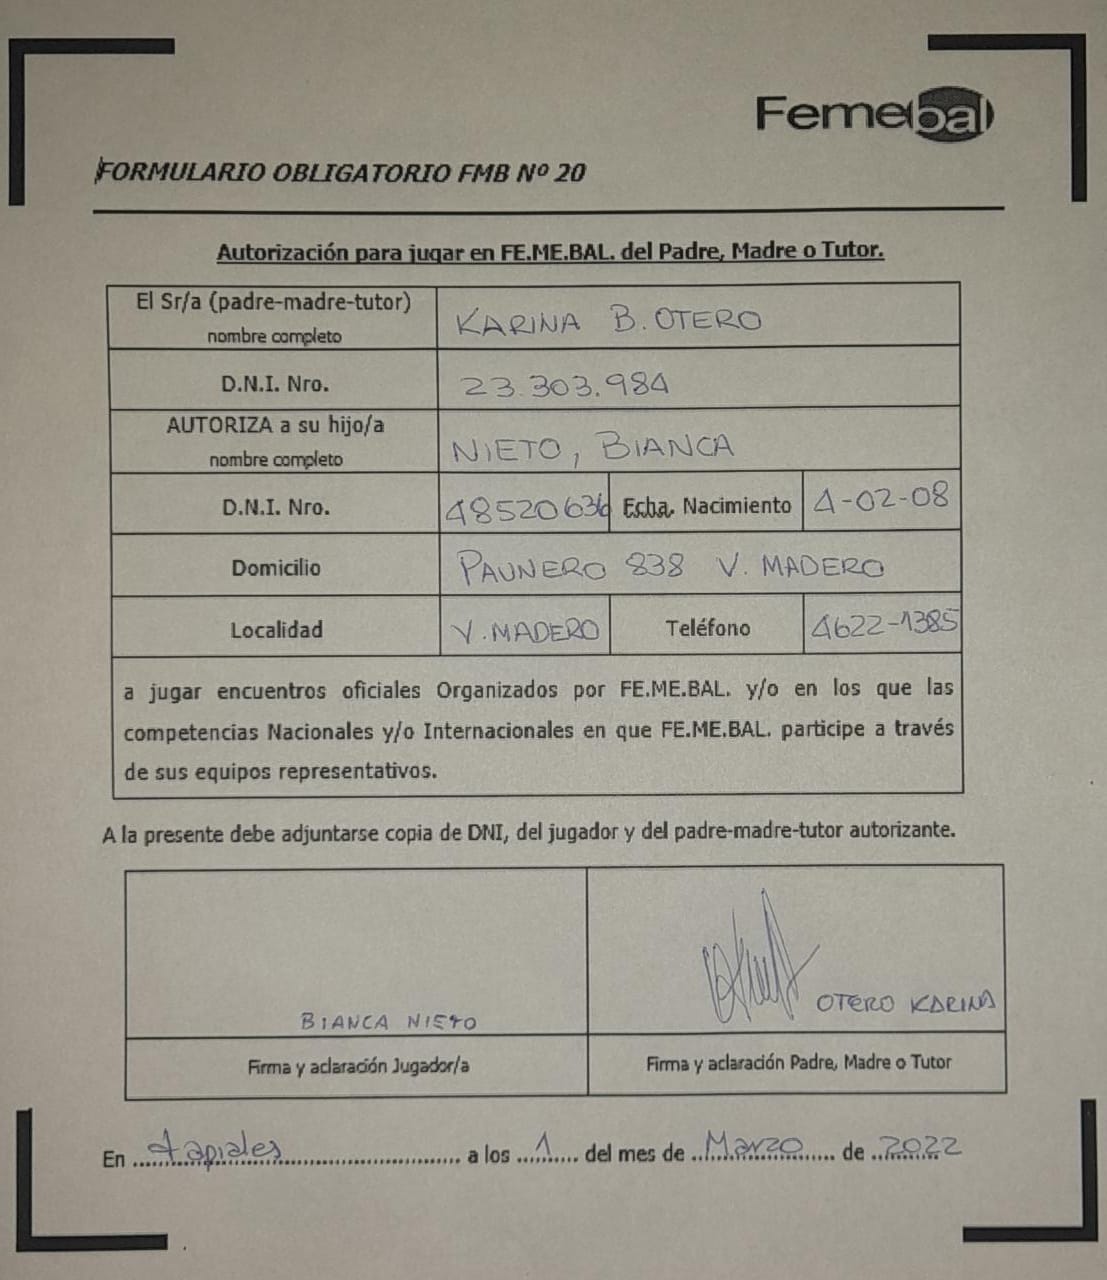 Femebal
FORMULARIO OBLIGATORIO FMB Nº 20
Autorización para jugar en FE.ME.BAL. del Padre, Madre o Tutor.
El Sr/a (padre-madre-tutor)
nombre completo
KARINA B. OTERO
D.N.I. Nro.
23.303.984
AUTORIZA a su hijo/a
nombre completo
NIETO, BIANCA
D.N.I. Nro.
48520636
Fcha. Nacimiento
4-02-08
Domicilio
PAUNERO 838 V. MADERO
Localidad
V. MADERO
Teléfono
4622-1385
a jugar encuentros oficiales Organizados por FE.ME.BAL. y/o en los que las
competencias Nacionales y/o Internacionales en que FE.ME.BAL. participe a través
de sus equipos representativos.
A la presente debe adjuntarse copia de DNI, del jugador y del padre-madre-tutor autorizante.
BIANCA NIETO
OTERO KARINA
Firma y aclaración Jugador/a
Firma y aclaración Padre, Madre o Tutor
En tapiales a los 1 del mes de Marzo de 2022